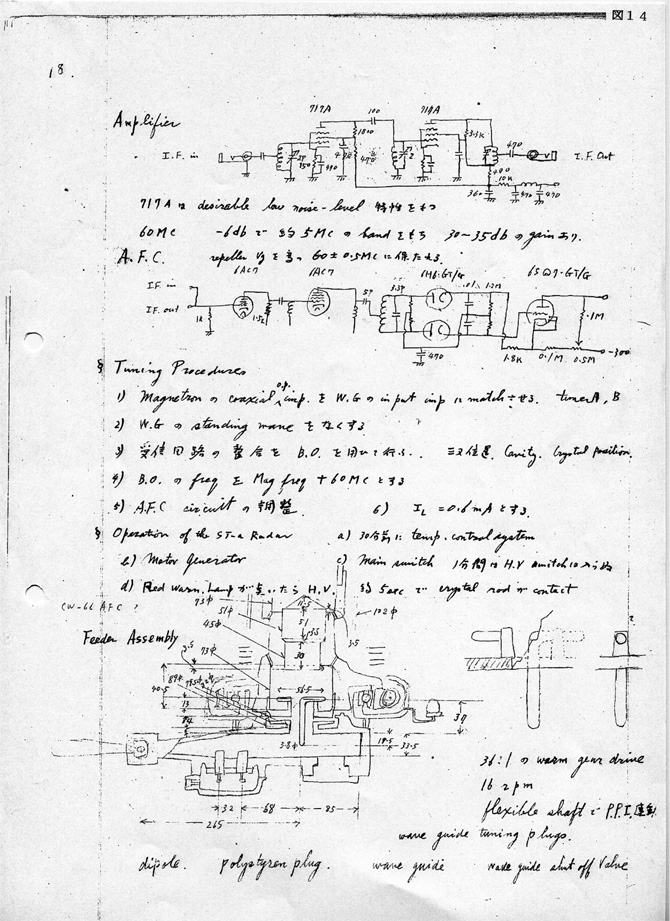 図14
18.
Amplifier
717A 100 717A
I.F. in 1800 3.3K 470 I.F. Out
400 10K
470 470
717A は desirable low noise-level 特性をもつ
60MC -6db で 約 5MC の band をもち 30~35db の gain あり.
A.F.C. repeller を 60±0.5MC に保たせる.
6AC7 6AC7 6H6·GT/G 6SQ7·GT/G
IF. in
IF. out 1K .1M
470 1.8K 0.1M 0.5M -300
§ Tuning Procedures
1) Magnetron の coaxial o.p. imp. を W.G の input imp に match させる. tuner A, B
2) W.G の standing wave をなくする
3) 受信回路の整合を B.O. を用いて行ふ. 位置. Cavity. Crystal position.
4) B.O. の freq を Mag freq + 60MC とする
5) A.F.C circuit の調整 6) IL = 0.6mA とする.
§ Operation of the ST-a Radar a) 30分前に temp. control system
b) Motor Generator c) Main switch 1分間に H.V switch に
d) Red Warn. Lamp がついたら H.V. 約 5sec で crystal rod の contact
(W-66 AFC ?
Feeder Assembly
73φ 51φ 45φ 51 30 102φ 3.5
73φ
40.5 56.5
13 30
3.8φ 19.5 33.5
32 68 85
265
36:1 の warm gear drive
16 rpm
flexible shaft で P.P.I. 連動
wave guide tuning plugs.
dipole. polystyren plug. wave guide wave guide shut off valve